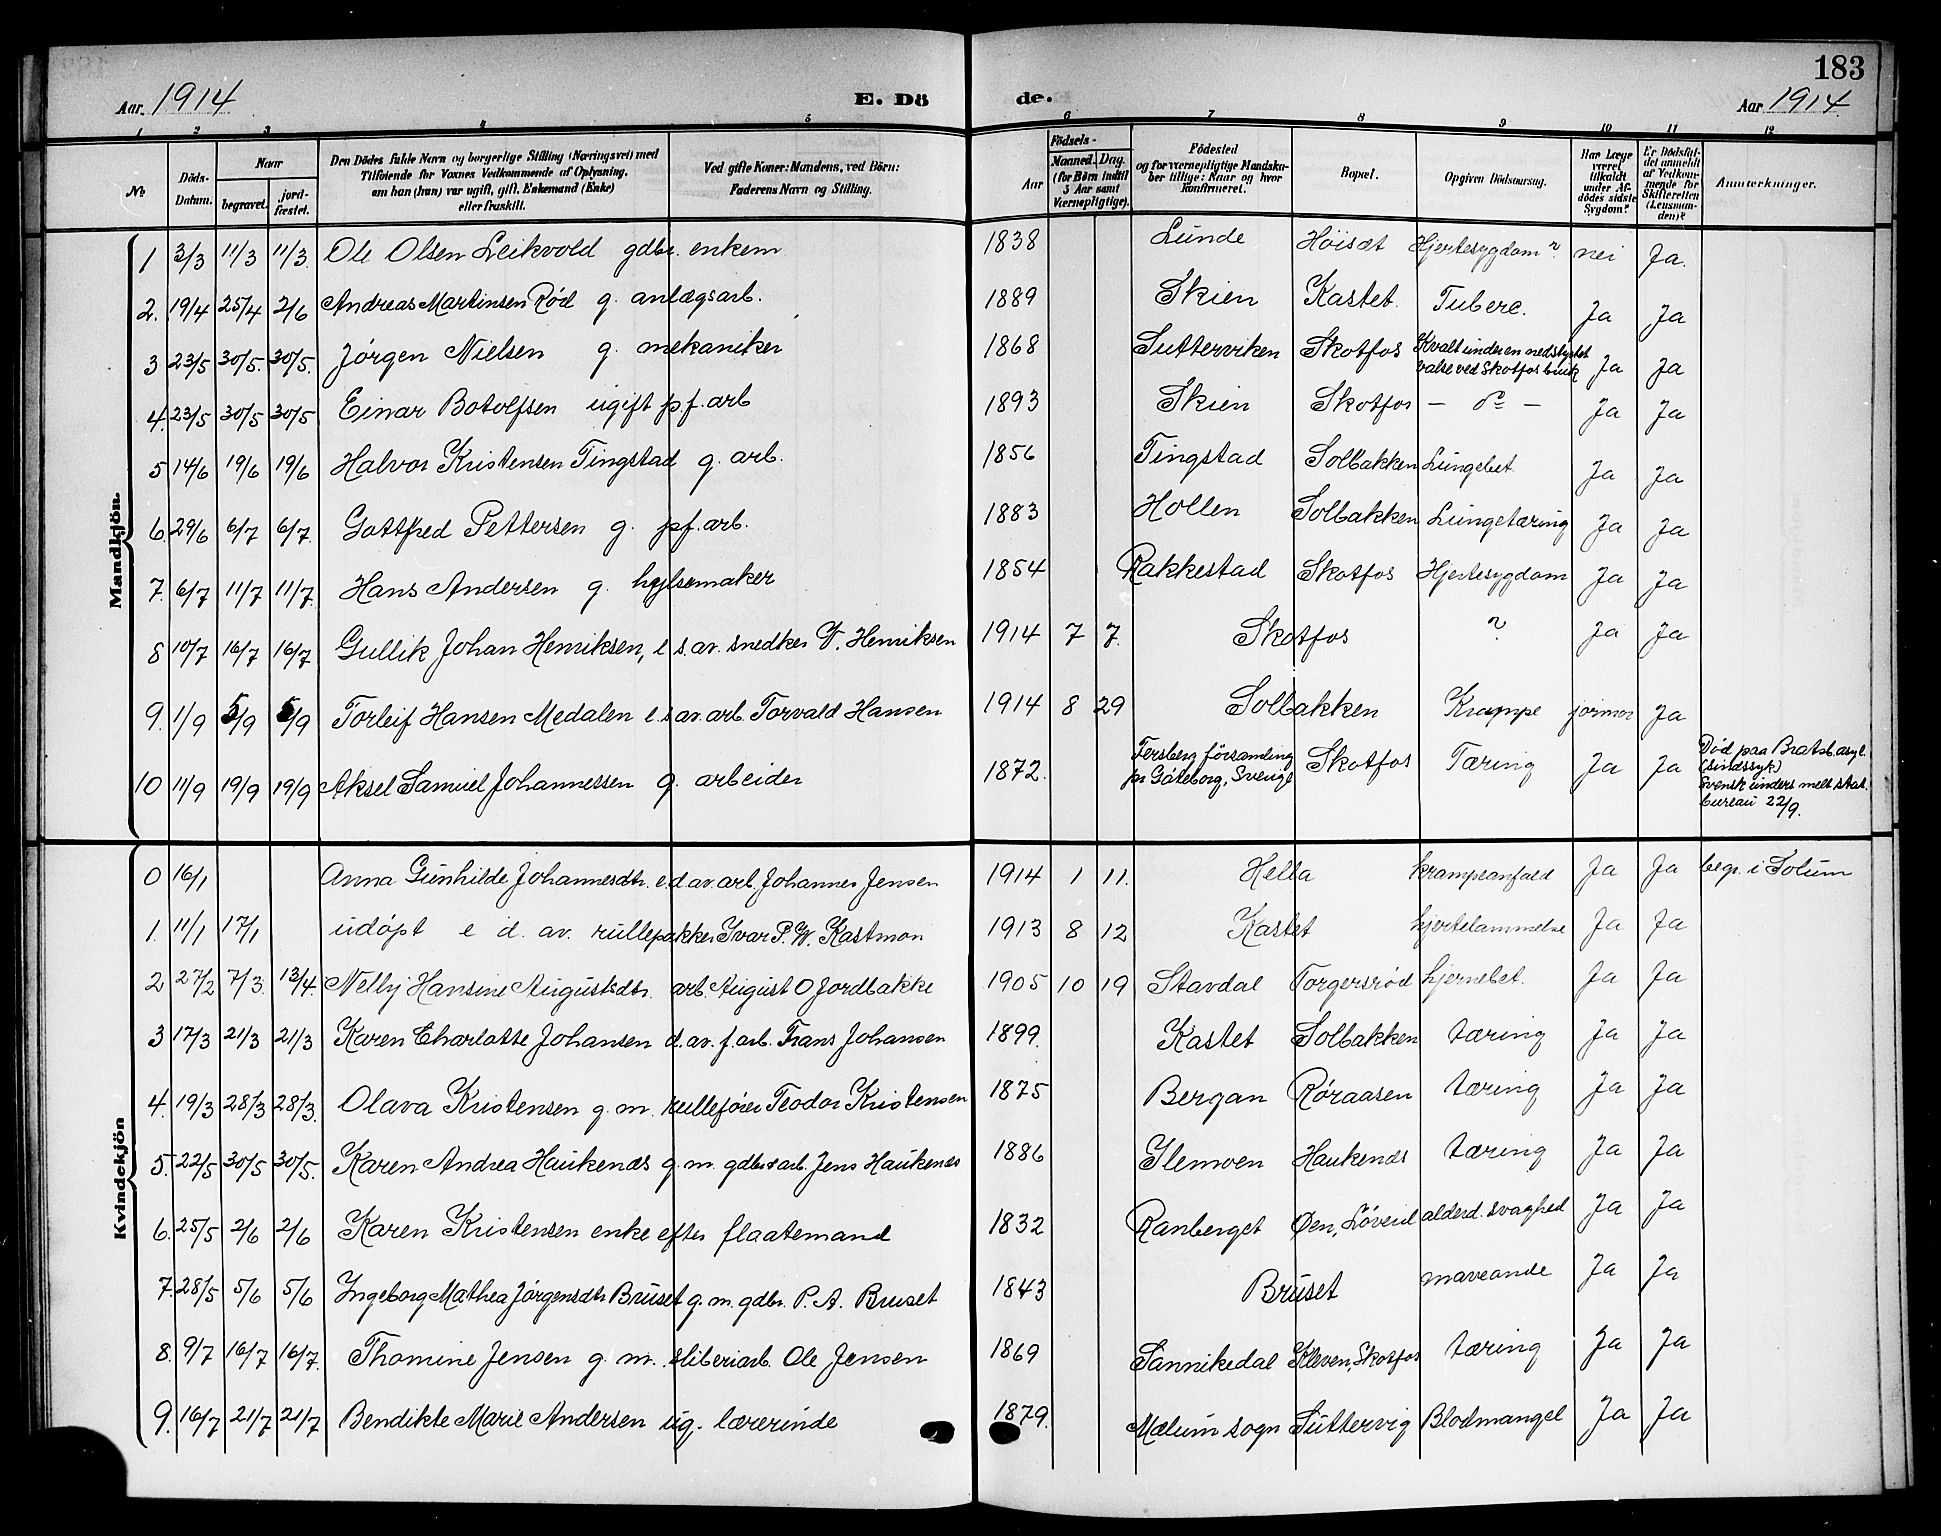 183
Aar. 1914 E. Dö de. Aar 1914
1 2 3 4 5 6 7 8 9 10 11 12
No Döds-Datum. Naar begravet. jord-fæstet. Den Dödes fulde Navn og borgerlige Stilling (Næringsvei) med Tilföiende for Voxnes Vedkommende af Oplysning, om han (hun) var ugift, gift, Enkemand (Enke) eller fraskilt. Ved gifte Koner: Mandens, ved Börn: Faderens Navn og Stilling. Födsels- Aar Maaned. Dag. (for Börn indtil 5 Aar samt Værnepligtige). Födested og for værnepligtige Mandskaber tillige: Naar og hvor Konfirmeret. Bopæl. Opgiven Dödsaarsag. Har Læge været tilkaldt under Afdödes sidste Sygdom? Er Dödsfaldet anmeldt af Vedkommende for Skifteretten (Lensmanden)? Anmærkninger.
Mandkjön.
1 3/3 11/3 11/3. Ole Olsen Leikvold gdbr. enkem 1838 Lunde Höisæt Hjertesygdom? nei Ja.
2. 19/4 25/4 2/6 Andreas Martinsen Rød g. anlægsarb. 1889 Skien Kastet. Tuberc. Ja Ja
3 23/5 30/5. 30/5. Jørgen Nielsen g. mekaniker 1868 Sutterviken Skotfos Kvalt under en nedstyrtet valse ved Skotfos bruk Ja Ja
4. 23/5 30/5 30/5 Einar Botolfsen ugift p.f. arb 1893 Skien Skotfos — do — Ja Ja
5 14/6 19/6 19/6 Halvor Kristensen Tingstad g. arb. 1856 Tingstad Solbakken Lungebet. Ja Ja
6. 29/6 6/7 6/7. Gottfred Pettersen g. pf. arb. 1883 Hollen Solbakken Lungetæring Ja Ja
7. 6/7 11/7 11/7. Hans Andersen g. hylsemaker 1854 Rakkestad Skotfos Hjertesygdom Ja Ja
8 10/7 16/7 16/7 Gullik Johan Henriksen, e s. av. snedker V. Henriksen 1914 7 7. Skotfos ? Ja Ja
9. 1/9 5/9 5/9 Torleif Hansen Medalen e. s av. arb. Torvald Hansen 1914 8 29 Solbakken Krampe jormor Ja
10 11/9 19/9 19/9 Aksel Samuel Johannessen g. arbeider 1872. Fersberg församling pr Göteborg, Sverige Skotfos Tæring Ja Ja Död paa Bratsb. asyl. (sindssyk) Svensk unders. melt stat. bureau 22/9.
Kvindekjön
0 16/1 Anna Gunhilde Johannesdtr. e. d av. arb. Johannes Jensen 1914 1 11. Hella krampeanfald Ja Ja begr. i Solum
1. 11/1 17/1 udöpt e d. av. rullepakker Ivar P. W. Kastmon 1913 8 12 Kastet hjertelammelse Ja Ja
2 27/2 7/3. 13/4. Nelly Hansine Augustsdtr. arb. August O Jordbakke 1905 10 19 Stavdal Torgersrød hjernebet. Ja Ja
3 17/3 21/3 21/3 Karen Charlotte Johansen d. av. f. arb. Frans Johansen 1899. Kastet Solbakken tæring Ja Ja
4. 19/3 28/3 28/3. Olava Kristensen g. m. rulleforer Teodor Kristensen 1875 Bergan Røraasen tæring Ja Ja
5. 22/5 30/5 30/5. Karen Andrea Haukenæs g. m. gdbr & arb. Jens Haukenæs 1886 Ilemoen Haukenæs tæring Ja Ja
6. 25/5 2/6 2/6 Karen Kristensen enke efter flaatemand 1832 Ranberget Øen, Löveid alderd. svaghed Ja Ja
7. 28/5 5/6 5/6 Ingeborg Mathea Jørgensdtr Bruset g. m. gdbr. P. A. Bruset 1843 Bruset maveonde Ja Ja
8. 9/7 16/7 16/7. Thomine Jensen g. m. sliberiarb. Ole Jensen 1869 Sannikedal Kleven, Skotfos tæring Ja Ja
9. 16/7 21/7 21/7 Bendikte Marie Andersen ug. lærerinde 1879. Mælum sogn Suttervig Blodmangel Ja Ja